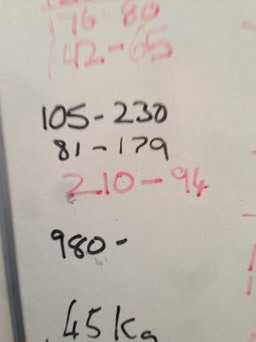 76 80
42-65
105-230
81-179
210-94
980-
.45Kg